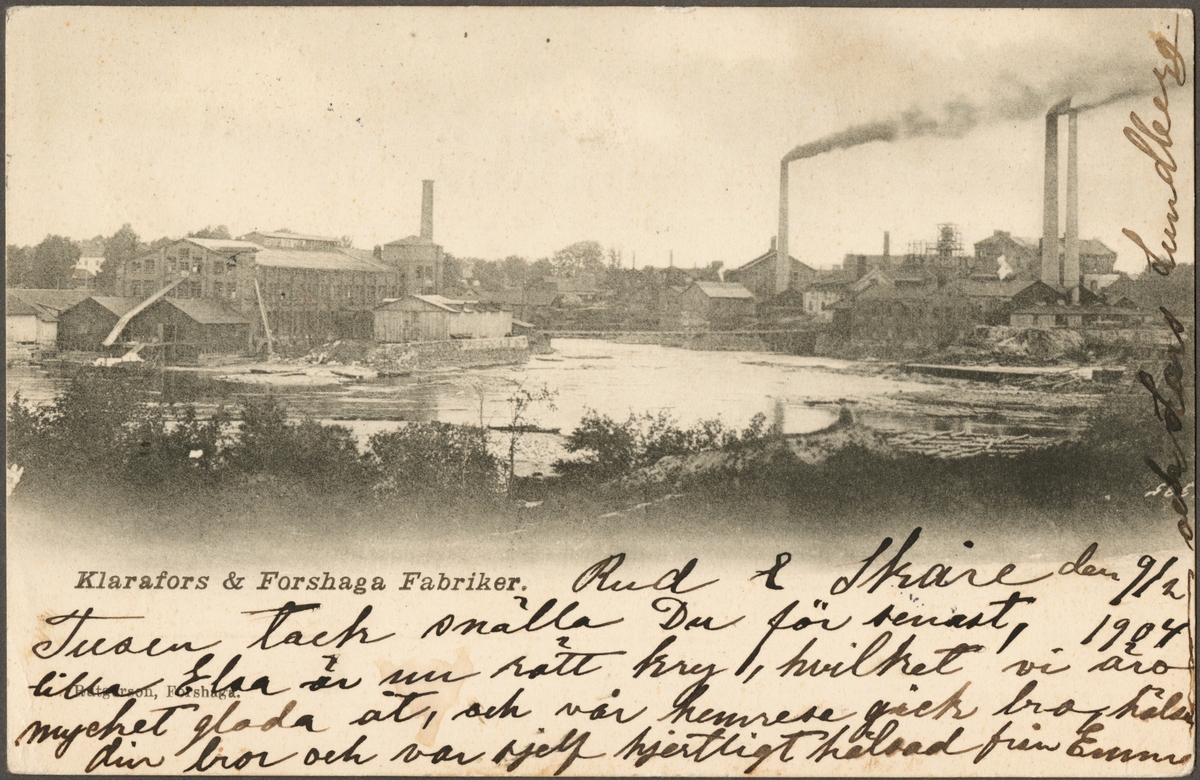 Klarafors & Forshaga Fabriker.
Rud & Skåre den 9/2
1904
Tusen tack snälla Du för senast,
lilla Elsa är nu rätt kry, hvilket vi äro
Rutgerson, Forshaga.
mycket glada åt, och vår hemresa gick bra, hälsa
din bror och var sjelf hjertligt hälsad från Emma
och Hans Lundberg